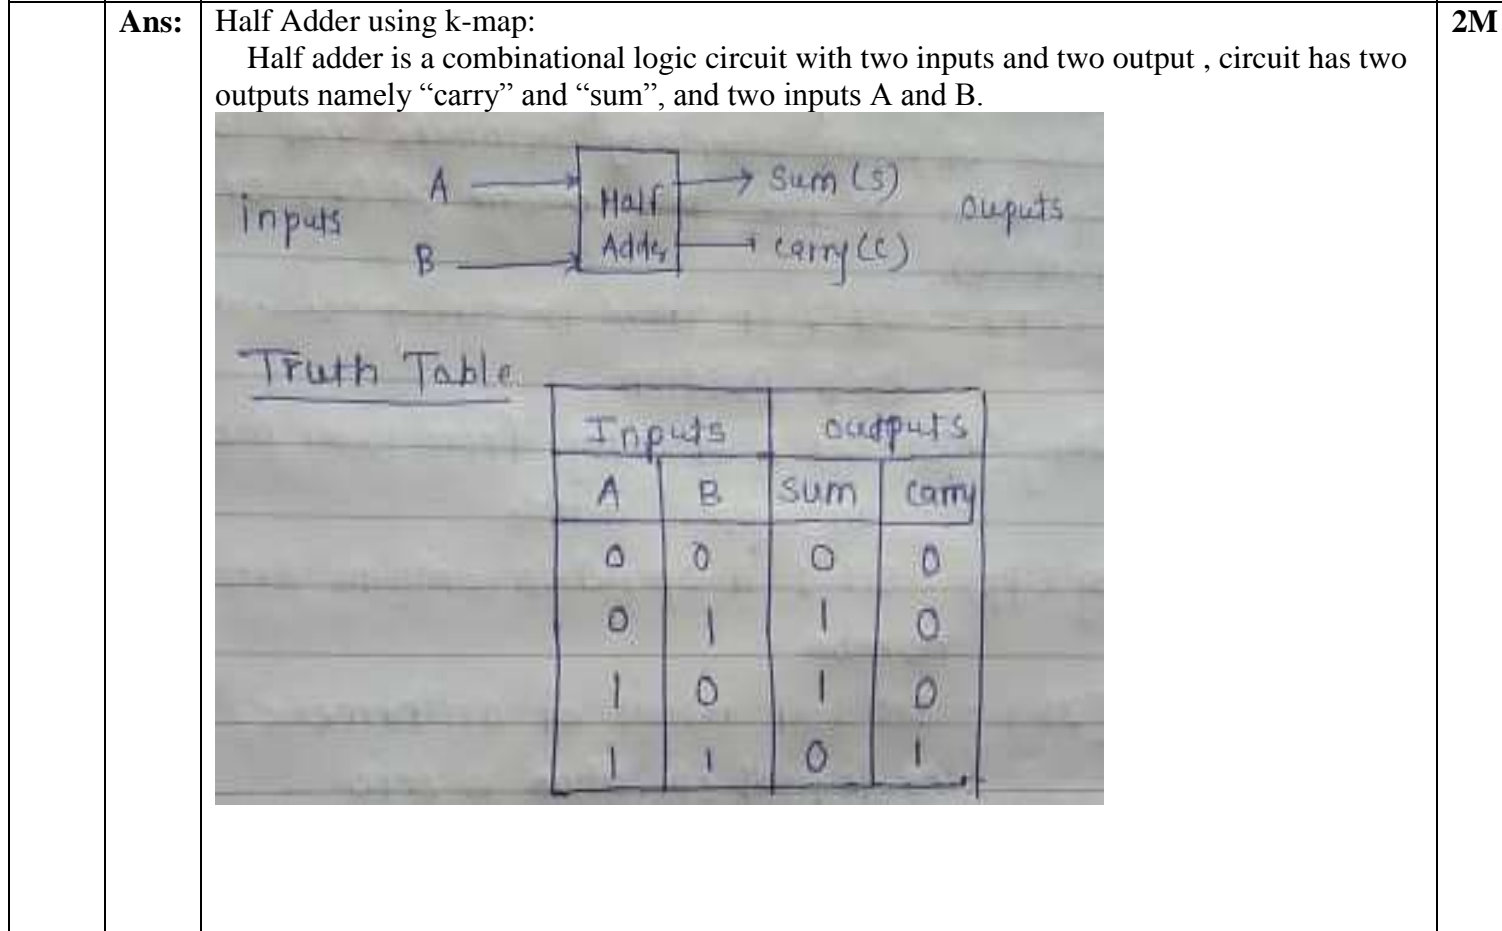 Ans: Half Adder using k-map: 2M
Half adder is a combinational logic circuit with two inputs and two output , circuit has two
outputs namely “carry” and “sum”, and two inputs A and B.
A Half Sum (S)
inputs ouputs
B Adder carry (C)
Truth Table
Inputs outputs
A B Sum carry
0 0 0 0
0 1 1 0
1 0 1 0
1 1 0 1